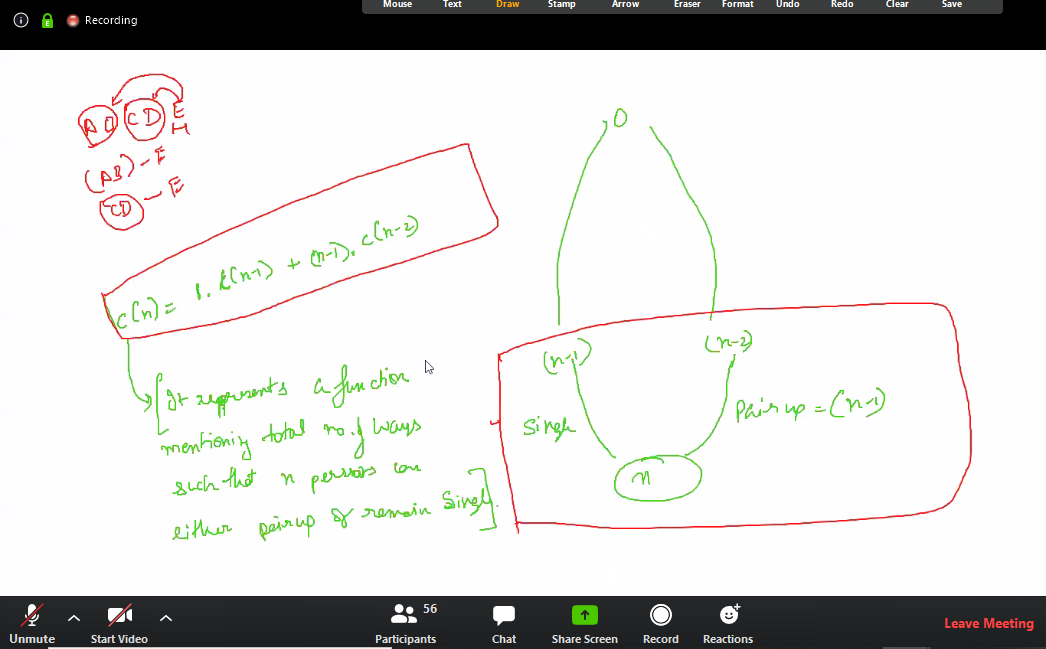 Mouse Text Draw Stamp Arrow Eraser Format Undo Redo Clear Save
Recording
CD E
H
(AB) - E
CD - E
C(n) = 1. C(n-1) + (n-1). C(n-2)
It represents a function
mentioning total no. of ways
such that n persons can
either pairup or remain Single.
O
(n-1) (n-2)
Single
Pair up = (n-1)
n
Unmute
Start Video
56
Participants
Chat
Share Screen
Record
Reactions
Leave Meeting